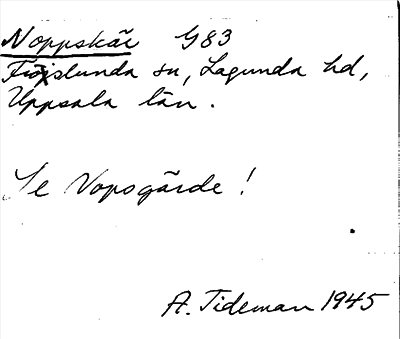 Noppskär G83
Fröslunda sn, Lagunda hd,
Uppsala län.
Se Vopsgärde!
A. Tideman 1945